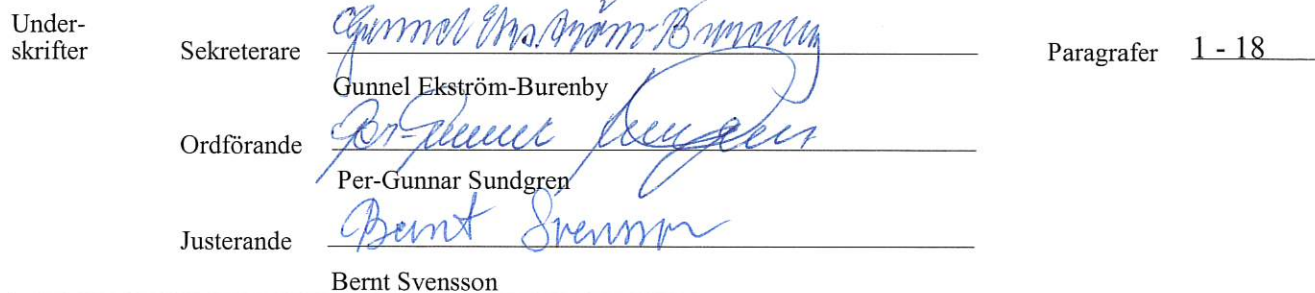 Under-
skrifter
Sekreterare Gunnel Ekström-Burenby Paragrafer 1 - 18
Gunnel Ekström-Burenby
Ordförande Per-Gunnar Sundgren
Per-Gunnar Sundgren
Justerande Bernt Svensson
Bernt Svensson